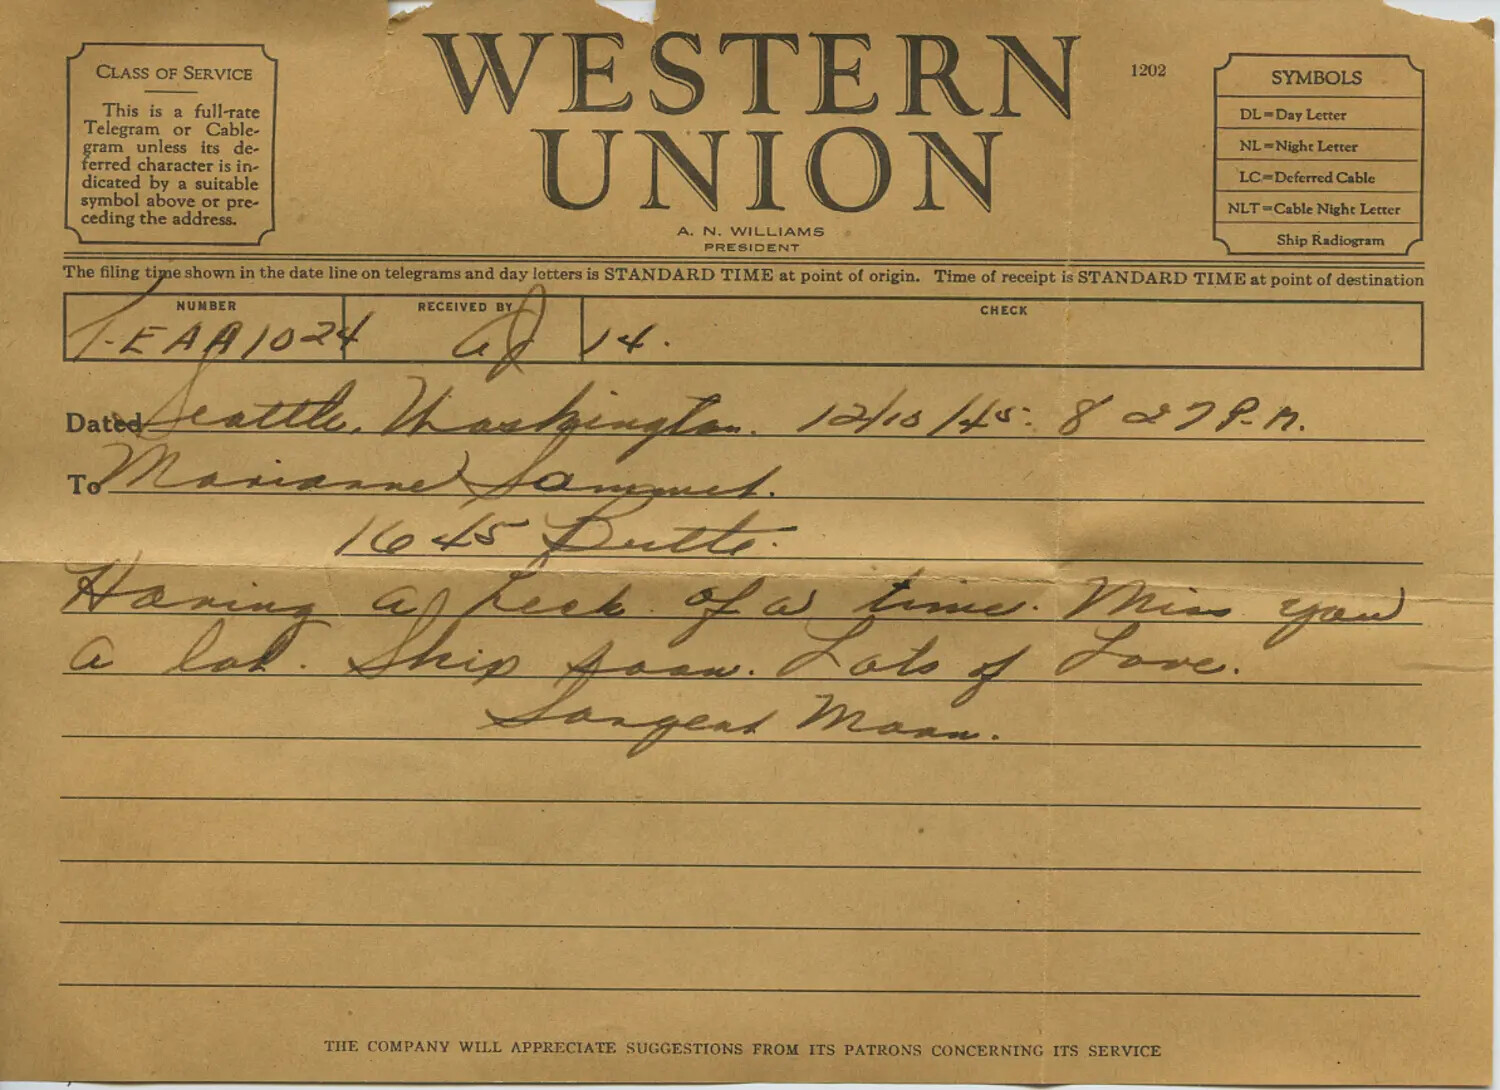 CLASS OF SERVICE
This is a full-rate
Telegram or Cable-
gram unless its de-
ferred character is in-
dicated by a suitable
symbol above or pre-
ceding the address.
WESTERN
UNION
1202
A. N. WILLIAMS
PRESIDENT
SYMBOLS
DL=Day Letter
NL=Night Letter
LC=Deferred Cable
NLT=Cable Night Letter
Ship Radiogram
The filing time shown in the date line on telegrams and day letters is STANDARD TIME at point of origin. Time of receipt is STANDARD TIME at point of destination
NUMBER RECEIVED BY CHECK
EAA1024 14.
Dated Seattle, Washington. 12/10/45: 8 27 P.M.
To Marianne Sammet.
1645 Butte.
Having a heck of a time. Miss you
a lot. Ship soon. Lots of Love.
Sargent Moon.
THE COMPANY WILL APPRECIATE SUGGESTIONS FROM ITS PATRONS CONCERNING ITS SERVICE